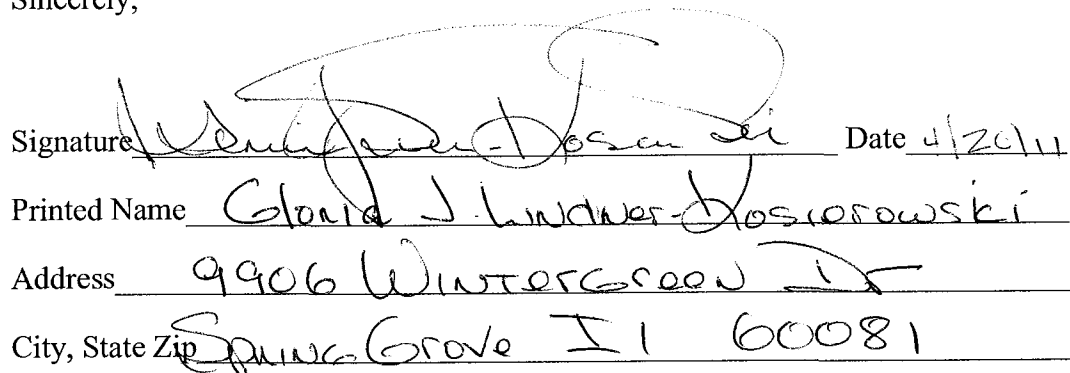 Sincerely,
Signature Date 4/20/11
Printed Name Gloria J. Lindner-Kosiorowski
Address 9906 Wintergreen Dr
City, State Zip Spring Grove Il 60081